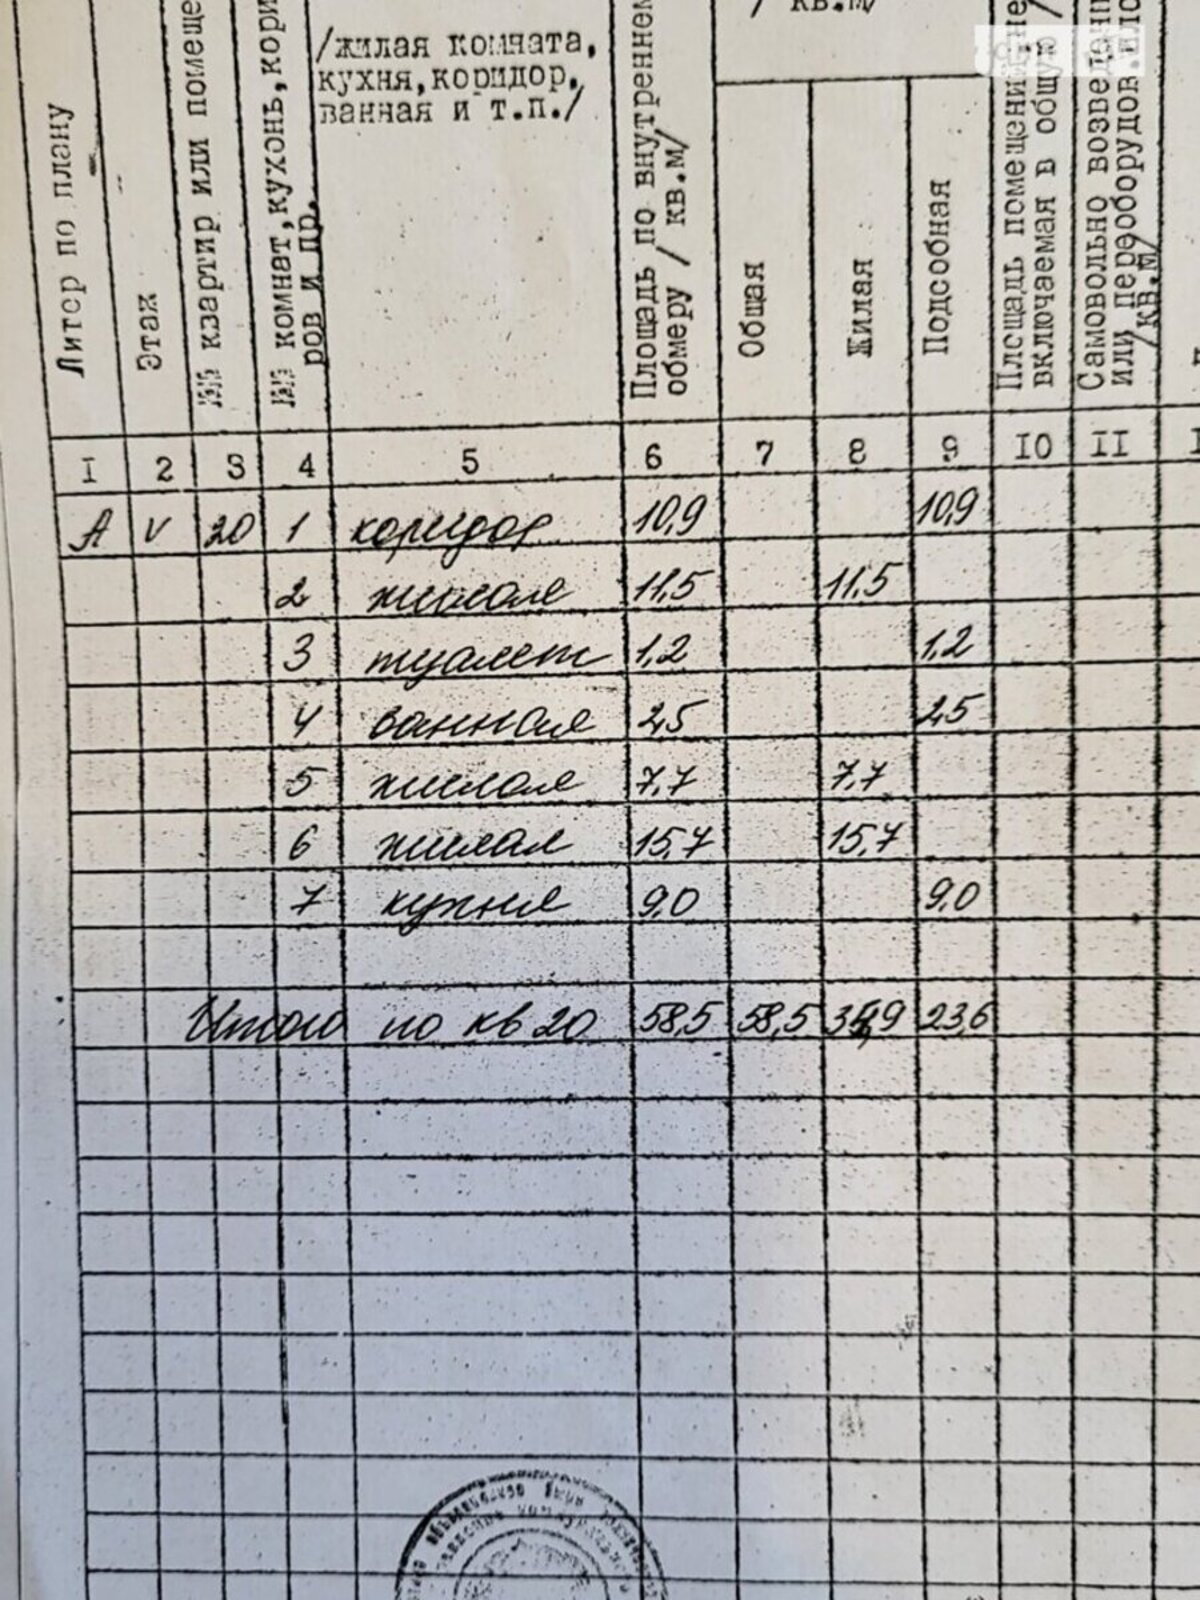 / кв.м/
/жилая комната,
кухня,коридор,
ванная и т.п./
Литер по плану
Этаж
№№ квартир или помеще
№№ комнат,кухонь,кори
ров и пр.
Площадь по внутреннем
обмеру / кв.м/
Общая
Жилая
Подсобная
Площадь помещени
включаемая в общую /
Самовольно возведенн
или переоборудов
/кв.м/
I 2 3 4 5 6 7 8 9 IO II
А V 20 1 коридор 10,9 10,9
2 жилая 11,5 11,5
3 туалет 1,2 1,2
4 ванная 2,5 2,5
5 жилая 7,7 7,7
6 жилая 15,7 15,7
7 кухня 9,0 9,0
Итого по кв 20 58,5 58,5 34,9 23,6